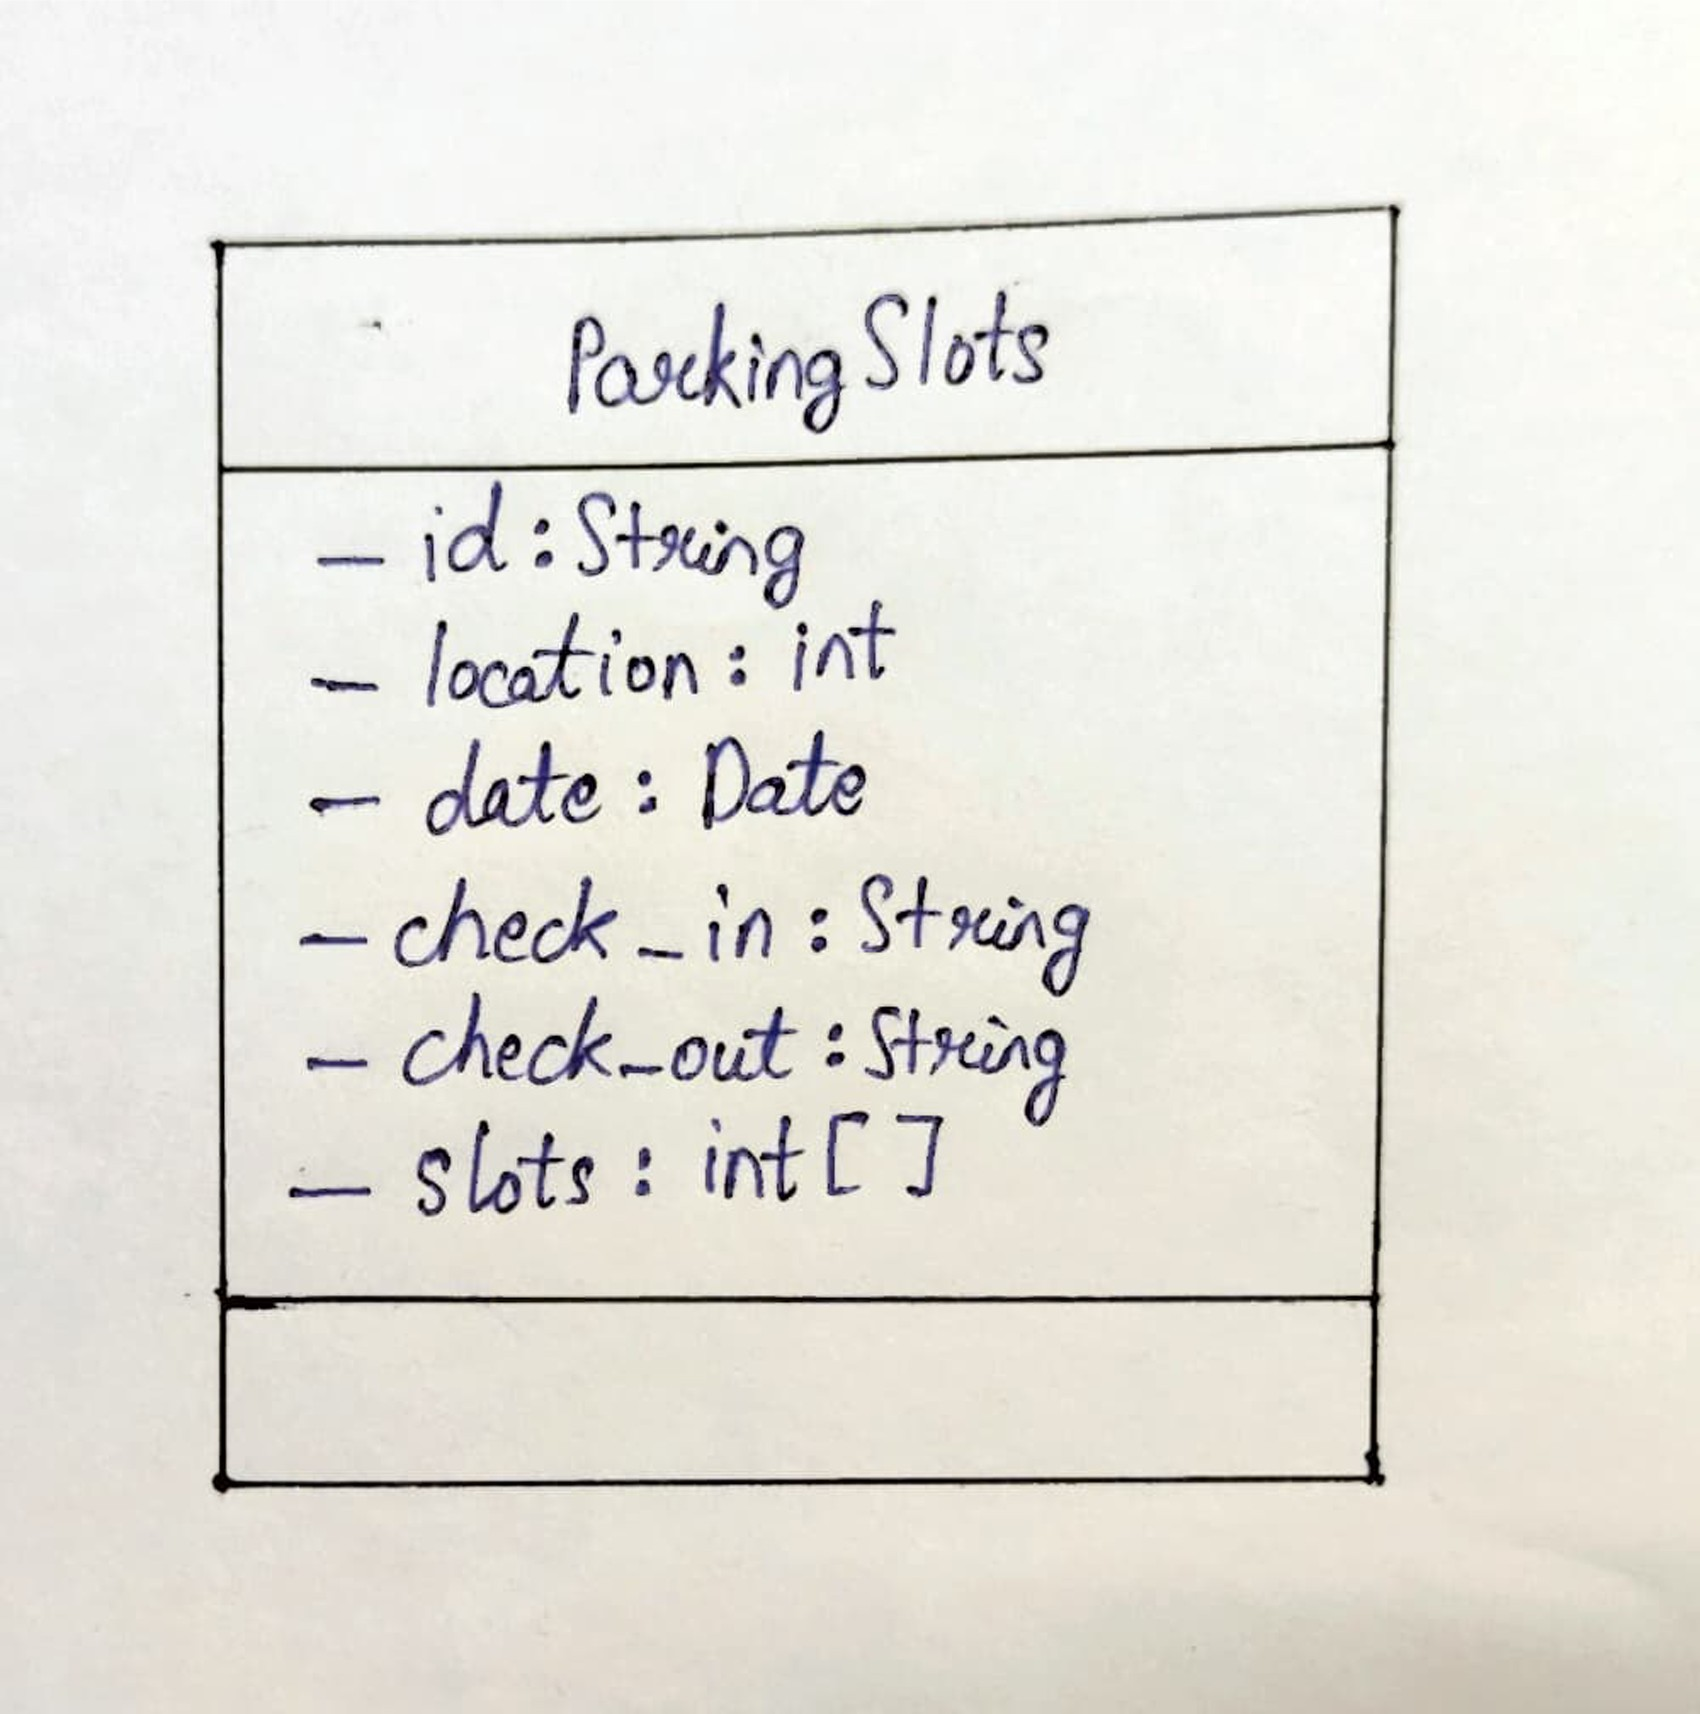 ParkingSlots
- id : String
- location : int
- date : Date
- check_in : String
- check_out : String
- slots : int [ ]